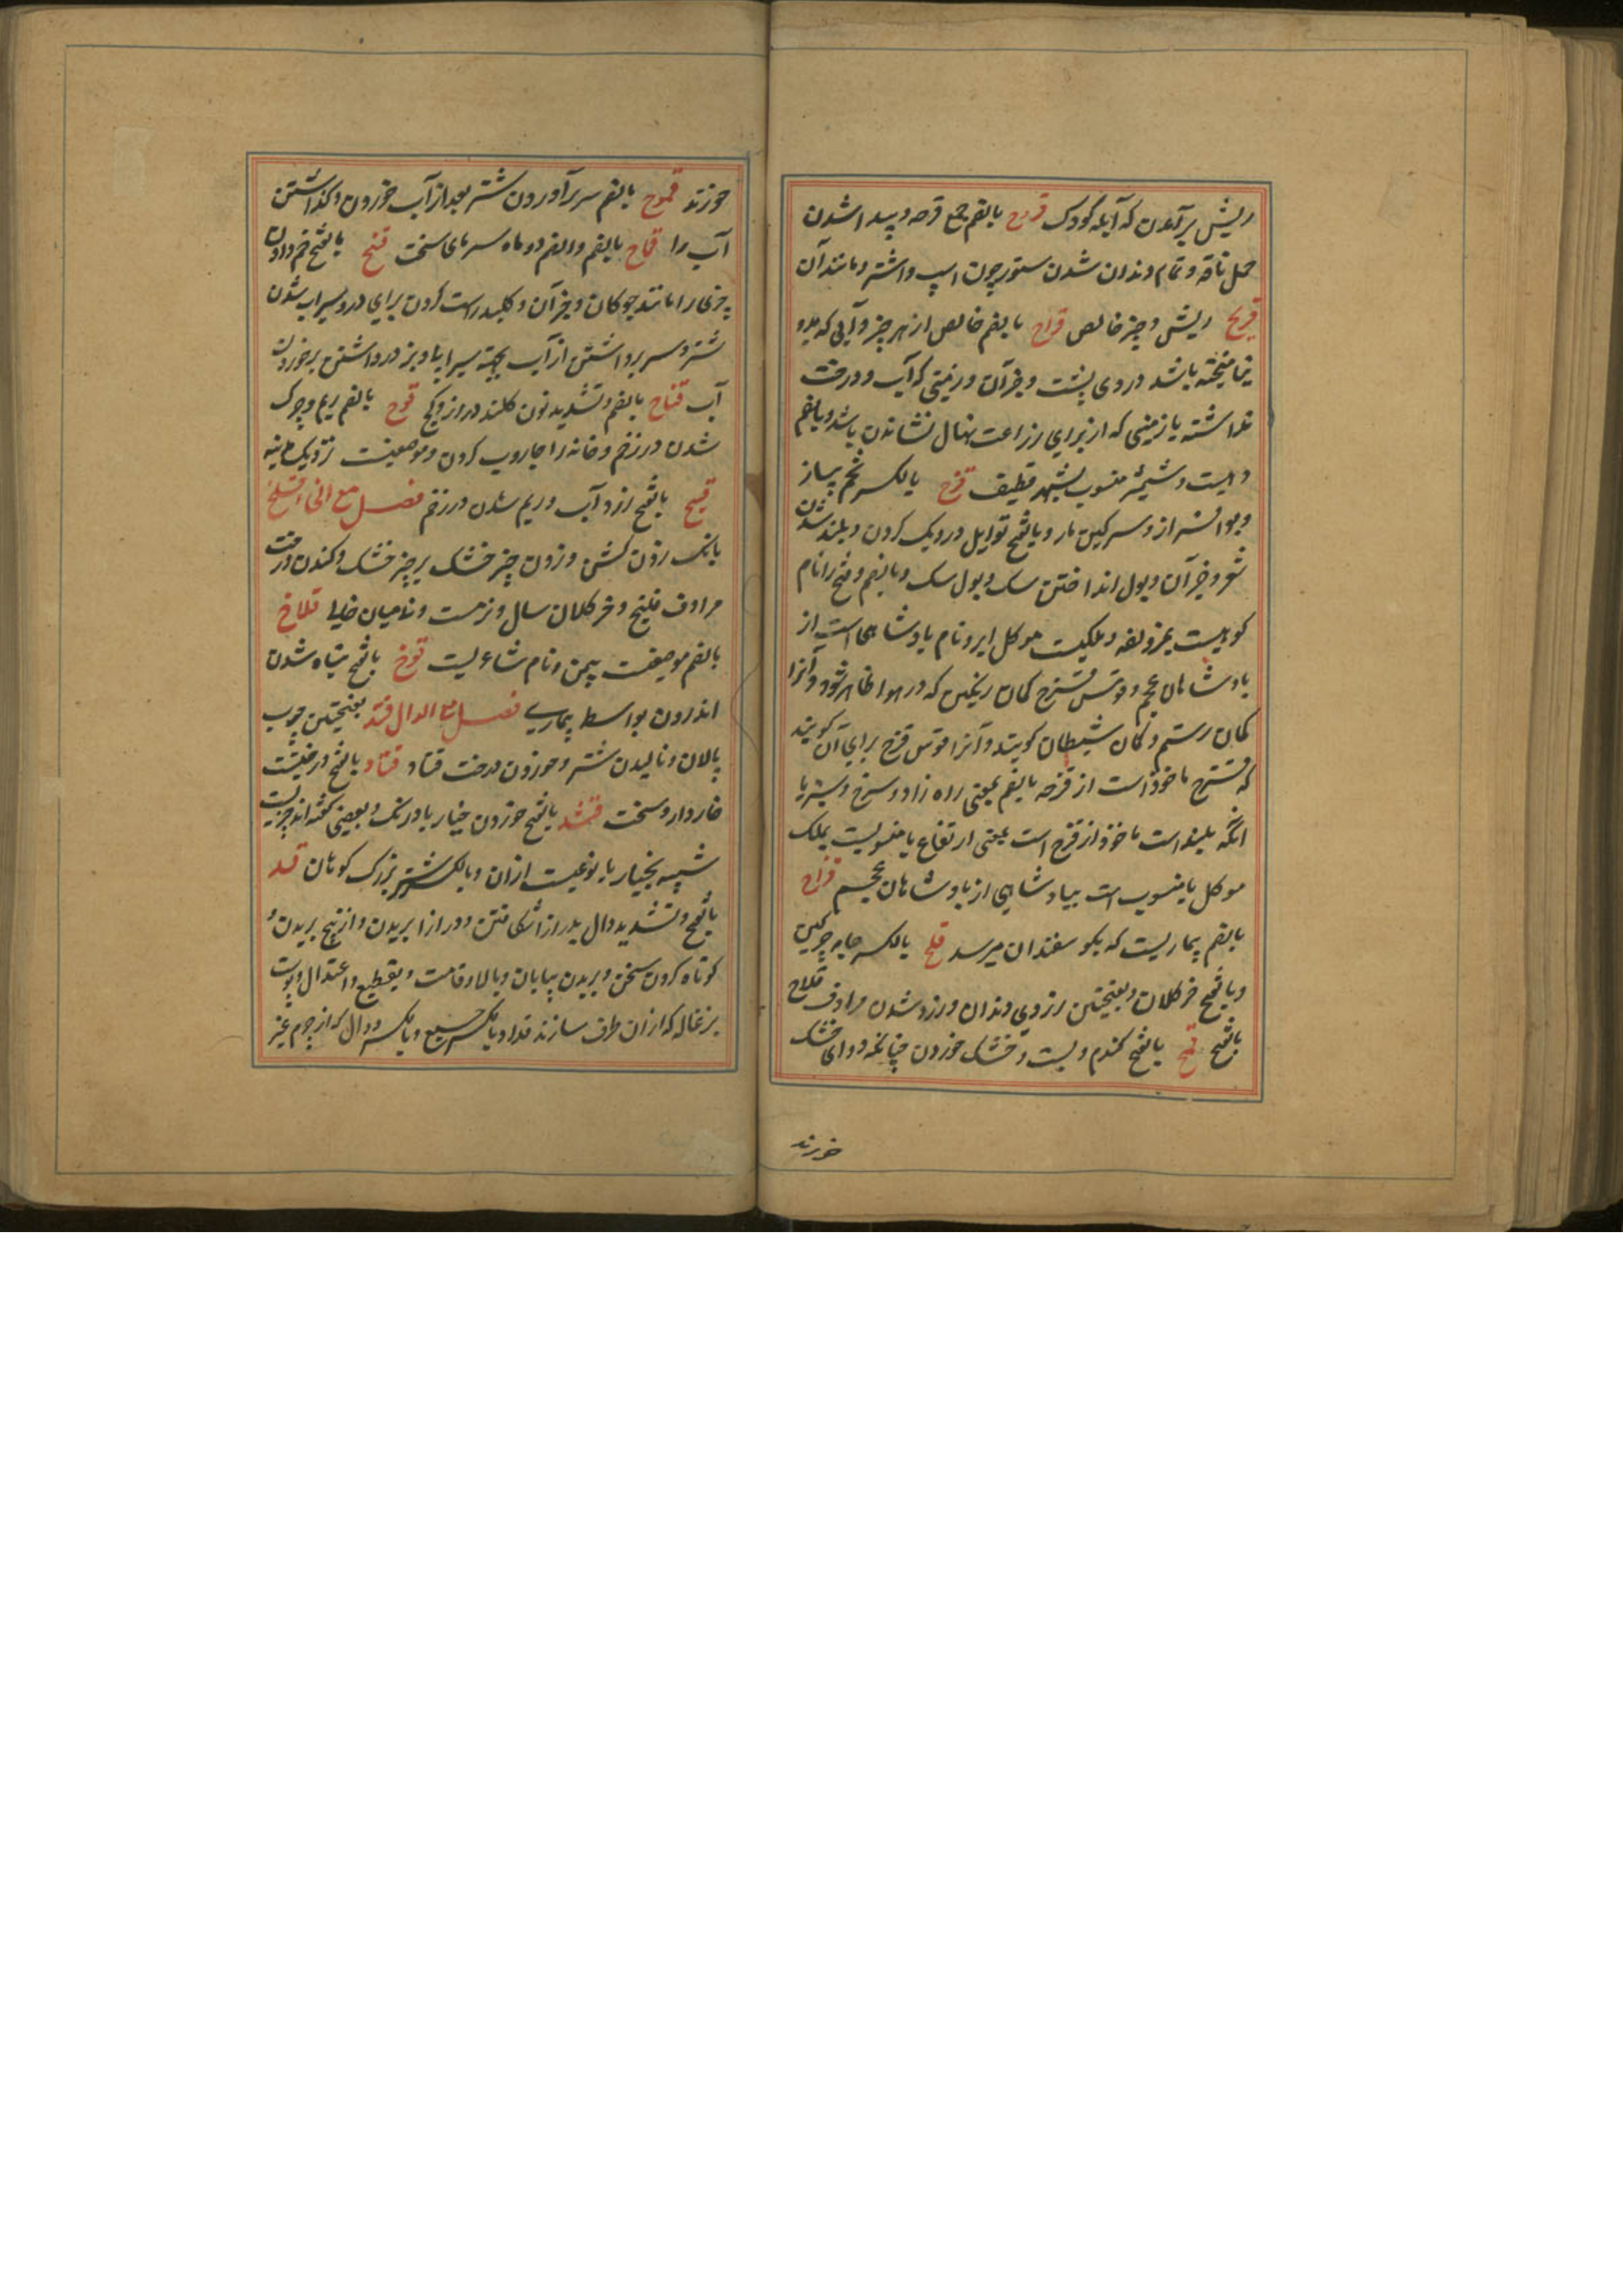 ریش برآمدن که آبله کودک قروح بالضم جمع قرحه و پیدا شدن
حمل ناقه و تمام دندان شدن ستور چون اسپ و اشتر و مانند آن
قریح ریش و چیز خالص قراح بالضم خالص از هر چیز و آبی که بدو
نیامیخته باشد در وی پشت و جز آن و زمینی که آب و درخت
نداشته یا زمینی که از برای زراعت نهال نشاندن باشد و بالضم
دهیست و شیئی منسوب بشهر قطیف قزح بالکسر تخم پیاز
و بو افزار و سرکین مار و بالفتح توابل در دیک کردن و بلند شدن
شعر و جز آن و بول انداختن سک و بول سک و بالضم و فتح زا نام
کوهیست بمزدلفه و ملکیست موکل ابر و نام پادشاهی است از
پادشاهان عجم و قوس قزح کمان رنگین که در هوا ظاهر شود و آنرا
کمان رستم و کمان شیطان کویند و آنرا قوس قزح برای آن کویند
که قزح ماخوذ است از قزحه بالضم بمعنی راه زرد و سرخ و سبز یا
انکه بلند است ماخوذ از قزح است بمعنی ارتفاع یا منسوبست بملک
موکل یا منسوب است بپادشاهی از پادشاهان عجم قزاح
بالضم بیماریست که بکوسفندان میرسد قلح بالکسر جامه چرکین
و بالفتح خر کلان و بفتحتین زردی دندان و زرد شدن مرادف قلاح
بالفتح قمح بالفتح کندم و پست و خشک خوردن چنانکه دوای خشک
خورند
خورند قموح بالضم سر برآوردن شتر بعد از آب خوردن و کذاشتن
آب را قماح بالضم و الضم دو ماه سرمای سخت قنح بالفتح خم دادن
چیزی را مانند چوکان و جز آن و کلید راست کردن برای در و سیراب شدن
شتر و سر برداشتن از آب بجهت سیرابی و بز در داشتن بر خوردن
آب قناح بالضم و تشدید نون کلند در و زوکج قوح بالضم ریم و چرک
شدن در زخم و خانه را جاروب کردن و موضعیست نزدیک مدینه
قیح بالفتح زرد آب و ریم شدن در زخم فصل مع الخاء قلخ
بانک زدن کشن و زدن چیز خشک بر چیز خشک و کندن درخت
مرادف قلیخ و خر کلان سال و نر مست و نی میان خالی قلاخ
بالضم موضعیست بیمن و نام شاعریست قوخ بالفتح تباه شدن
اندرون بواسطه بیماری فصل مع الدال قتد بفتحتین چوب
پالان و نالیدن شتر و خوردن درخت قتاد قتاد بالفتح درختیست
خاردار و سخت قثد بالفتح خوردن خیار بادرنک و بعضی کفته اند چیزیست
شبیه بخیار یا نوعیست ازان و بالکسر شتر بزرک کوهان قد
بالفتح و تشدید دال بدرازا شکافتن و درازا بریدن و از بیخ بریدن و
کوتاه کردن سخن و بریدن بیابان و بالا و قامت و تقطیع و اعتدال و پوست
بزغاله که ازان ظرف سازند قداد بالکسر جمع و بالکسر دوال که از چرم غیر